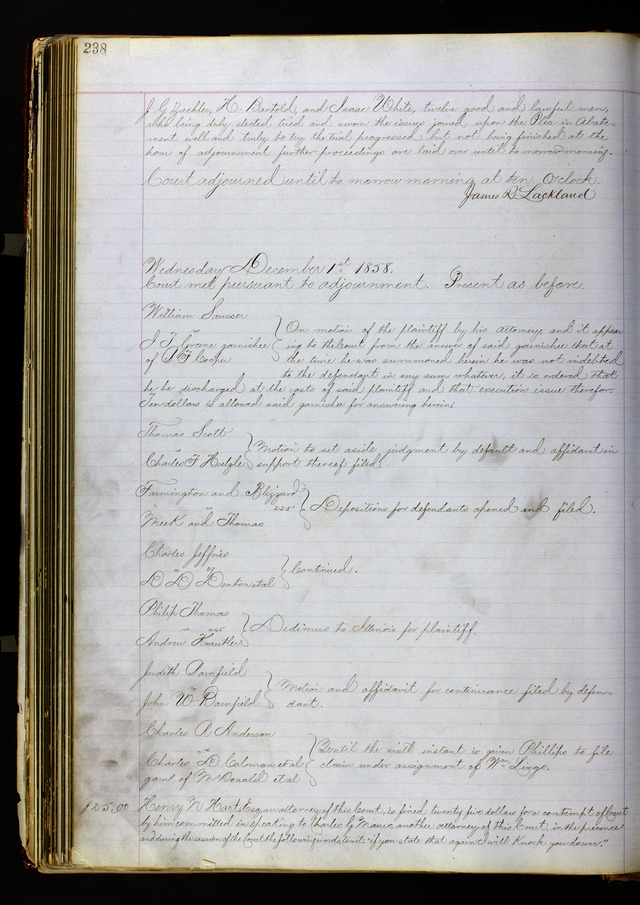 238
J. G. Buckler, H. Bartold, and Isaac White, twelve good and lawful men,
who being duly elected tried and sworn the issues joined upon the Plea in Abate=
ment well and truly to try the trial progressed but not being finished at the
hour of adjournment further proceedings are laid over until to morrow morning.
Court adjourned until to morrow morning at ten O'clock.
James R. Lackland
Wednesday December 1st 1858.
Court met pursuant to adjournment. Present as before.
William Sausser
vs
J. T. Greene garnishee
of S. F. Cooper
On motion of the plaintiff by his attorney, and it appear
ing to the Court from the answer of said garnishee that at
the time he was summoned herein he was not indebted
to the defendant in any sum whatever, it is ordered that
he be discharged at the costs of said plaintiff and that execution issue therefor.
Ten dollars is allowed said garnishee for answering herein.
Thomas Scott
vs
Charles F.
Motion to set aside judgment by default and affidavit in
support thereof filed.
Farmington and Blizzard
225
Meek and Thomas
Depositions for defendants opened and filed.
Charles Jeffries
vs
D. D. Denton et al
Continued.
Philip Thomas
vs
Andrew
Dedimus to Illinois for plaintiff.
Judith Barnfield
vs
John W. Barnfield
Motion and affidavit for continuance filed by defen-
dant.
Charles R. Anderson
vs
Charles D. Colman et al
garn. of McDonald et al
Until the sixth instant is given Phillips to file
claim under assignment of Wm. Linge.
Henry N. Hart, Esq. an attorney of this Court, is fined twenty five dollars for a contempt of Court
by him committed in speaking to Charles G. Mauro, another attorney of this Court, in the presence
and during the session of the Court the following words towit: "if you state that again I will knock you down."